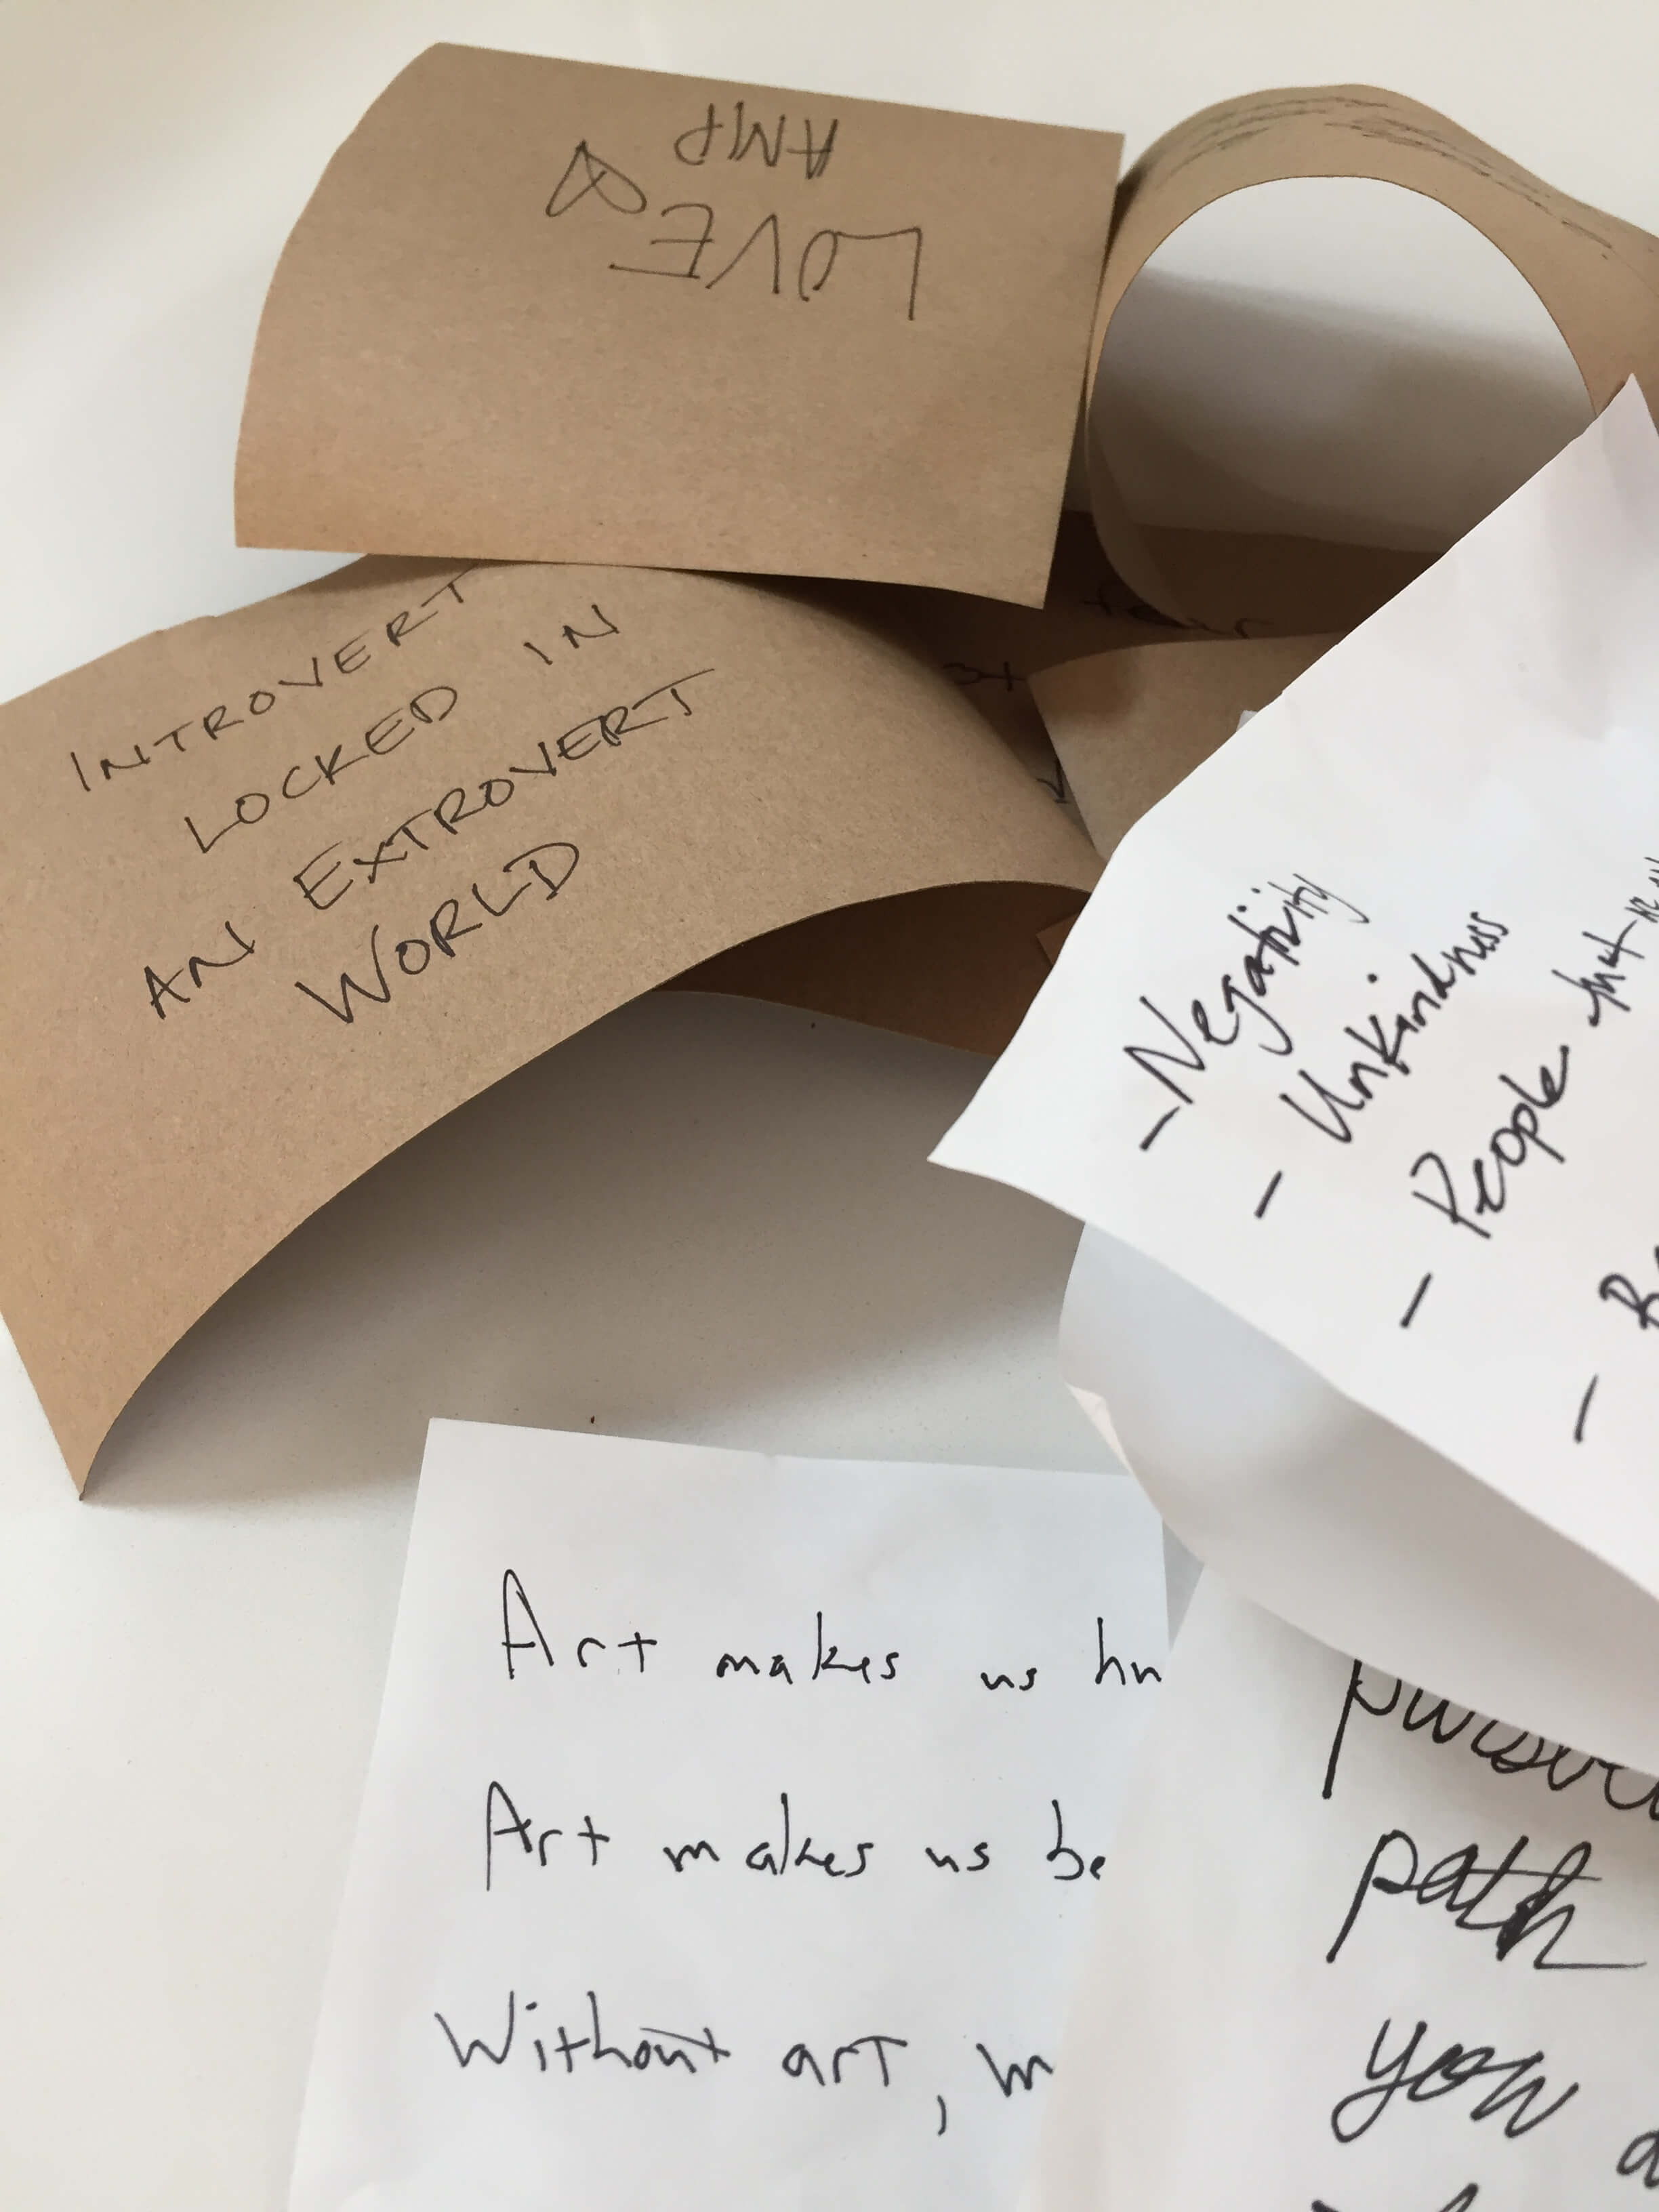 LOVE
AMP
INTROVERT
LOCKED IN
AN EXTROVERT
WORLD
fear
- Negativity
- Unkindness
- People that
-
Art makes us hu
Art makes us be
Without art, m
path
you